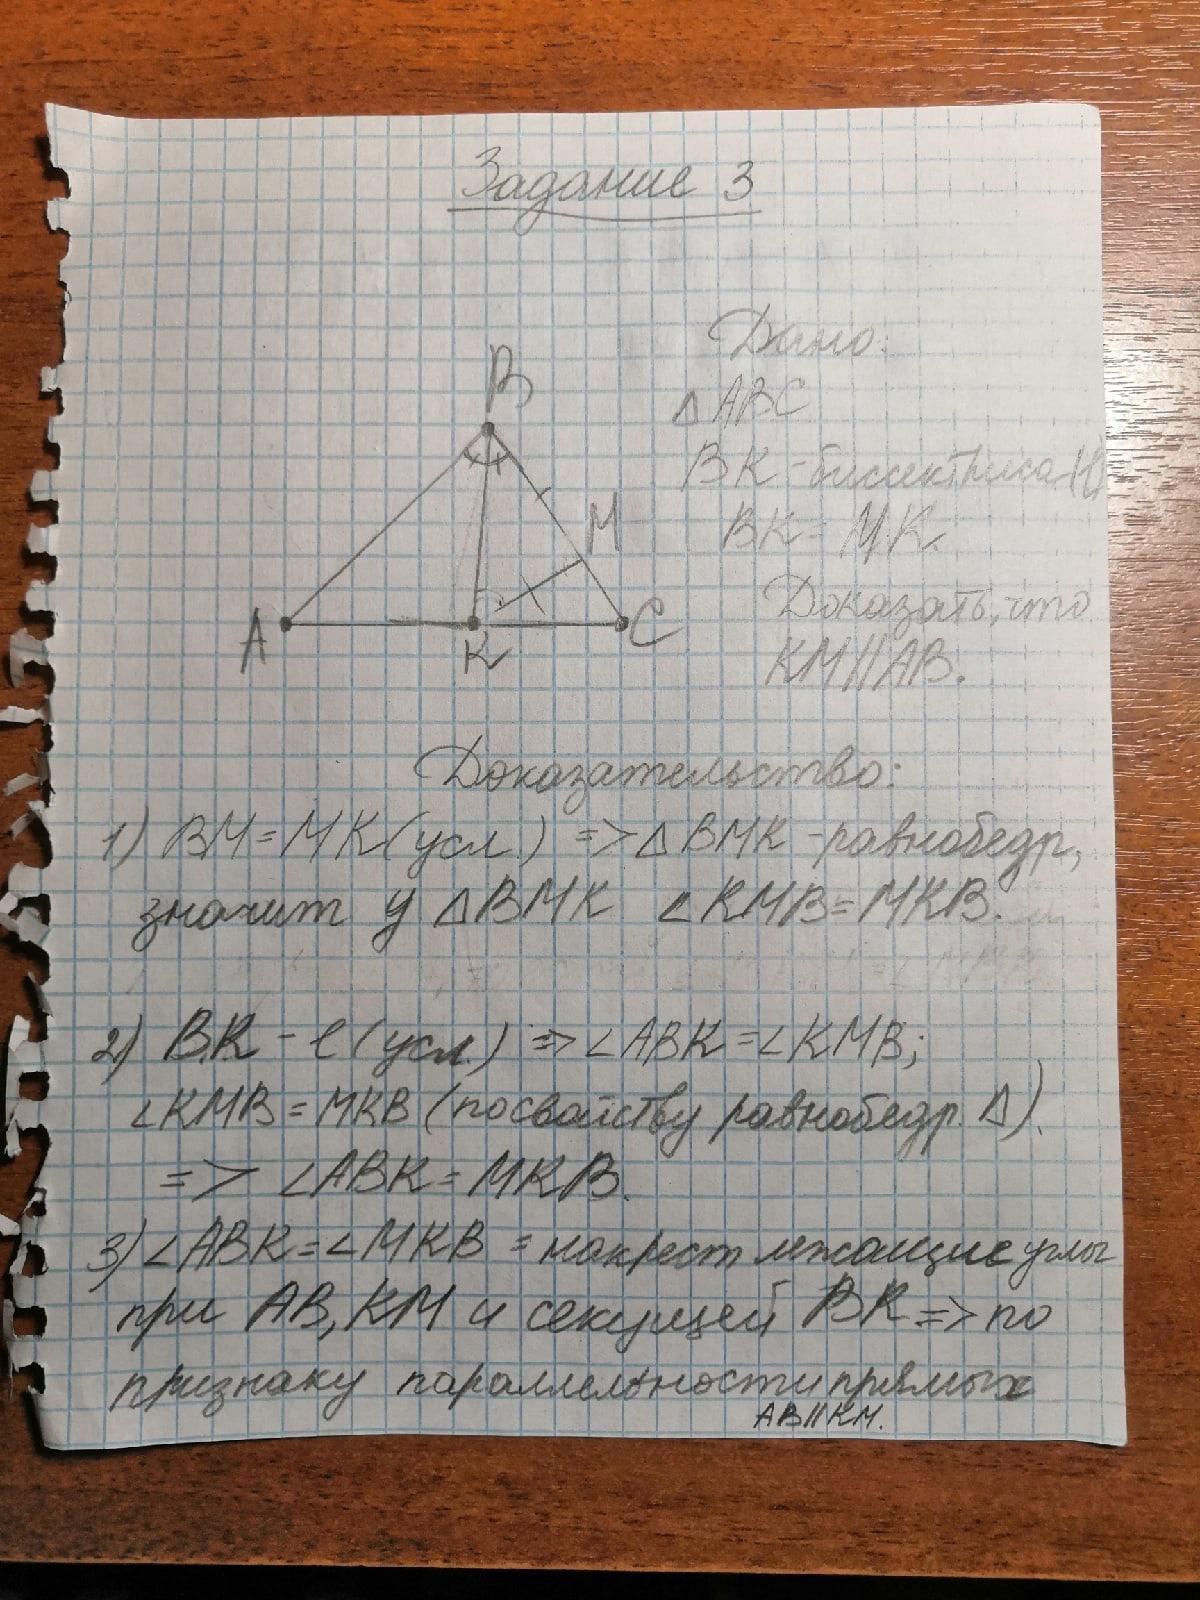 Задание 3
Дано:
△ABC
BK - биссектриса (l)
BK = MK.
Доказать, что
KM || AB.
B
M
A
K
C
Доказательство:
1) BM = MK (усл.) => △BMK - равнобедр,
значит у △BMK ∠KMB = MKB.
2) BK - l (усл.) => ∠ABK = ∠KMB;
∠KMB = MKB (по свойству равнобедр. △).
=> ∠ABK = MKB.
3) ∠ABK = ∠MKB = накрест лежащие углы
при AB, KM и секущей BK => по
признаку параллельности прямых
AB || KM.